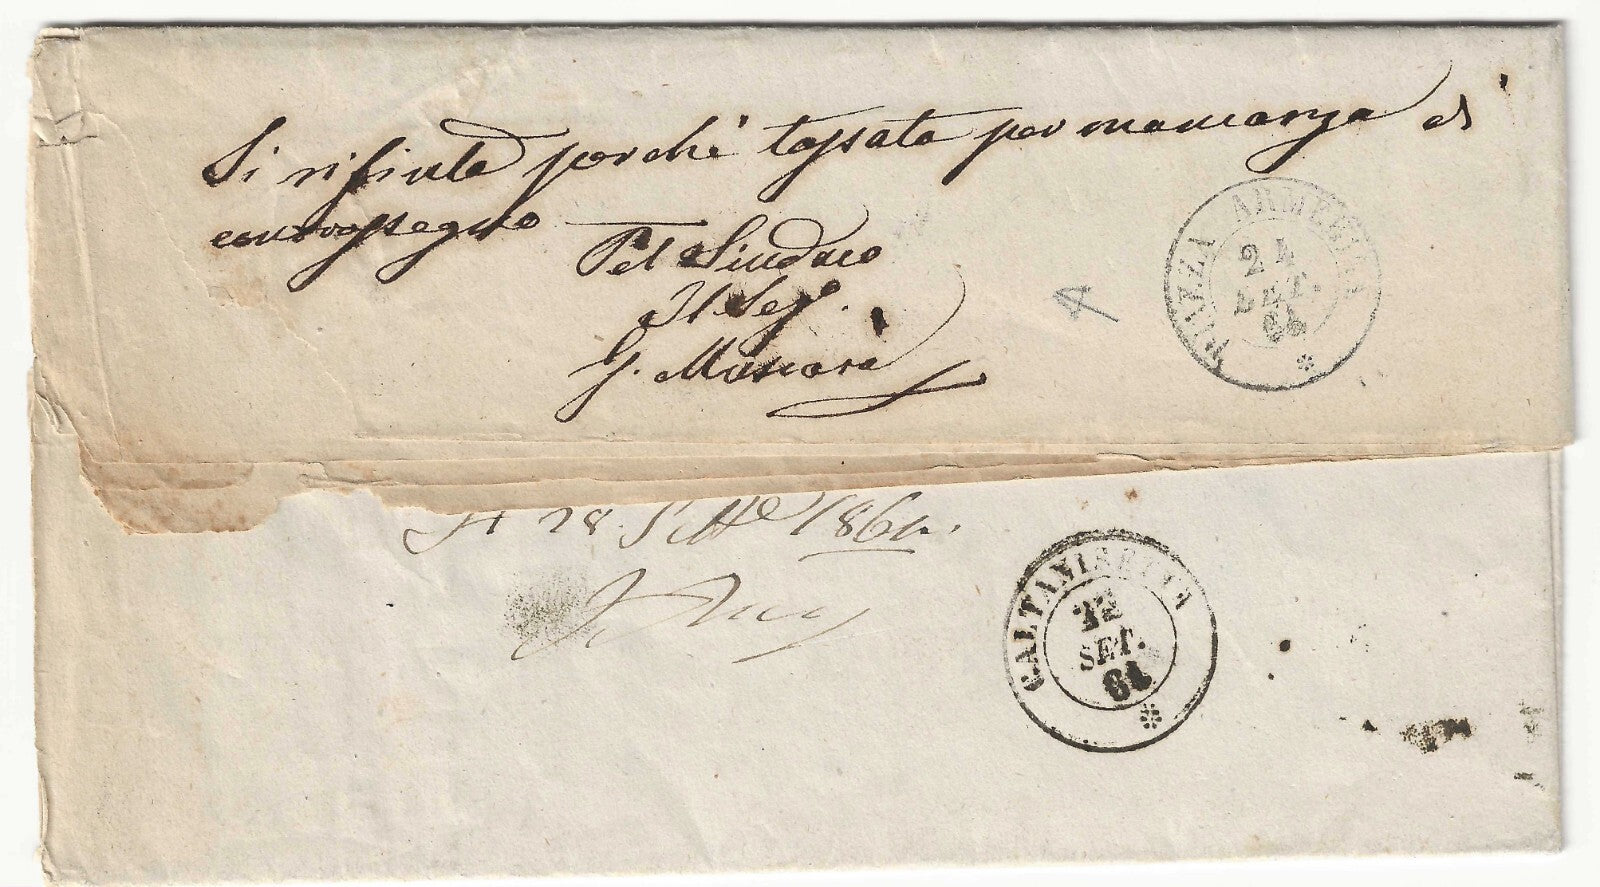 Si rifiuta perchè tassata per mancanza di
contrassegno
Pel Sindaco
Il Seg.º
G. Muscarà
PIAZZA ARMERINA
24
SET.
64
28 Sett.e 1864.
CALTANISSETTA
22
SET.
64